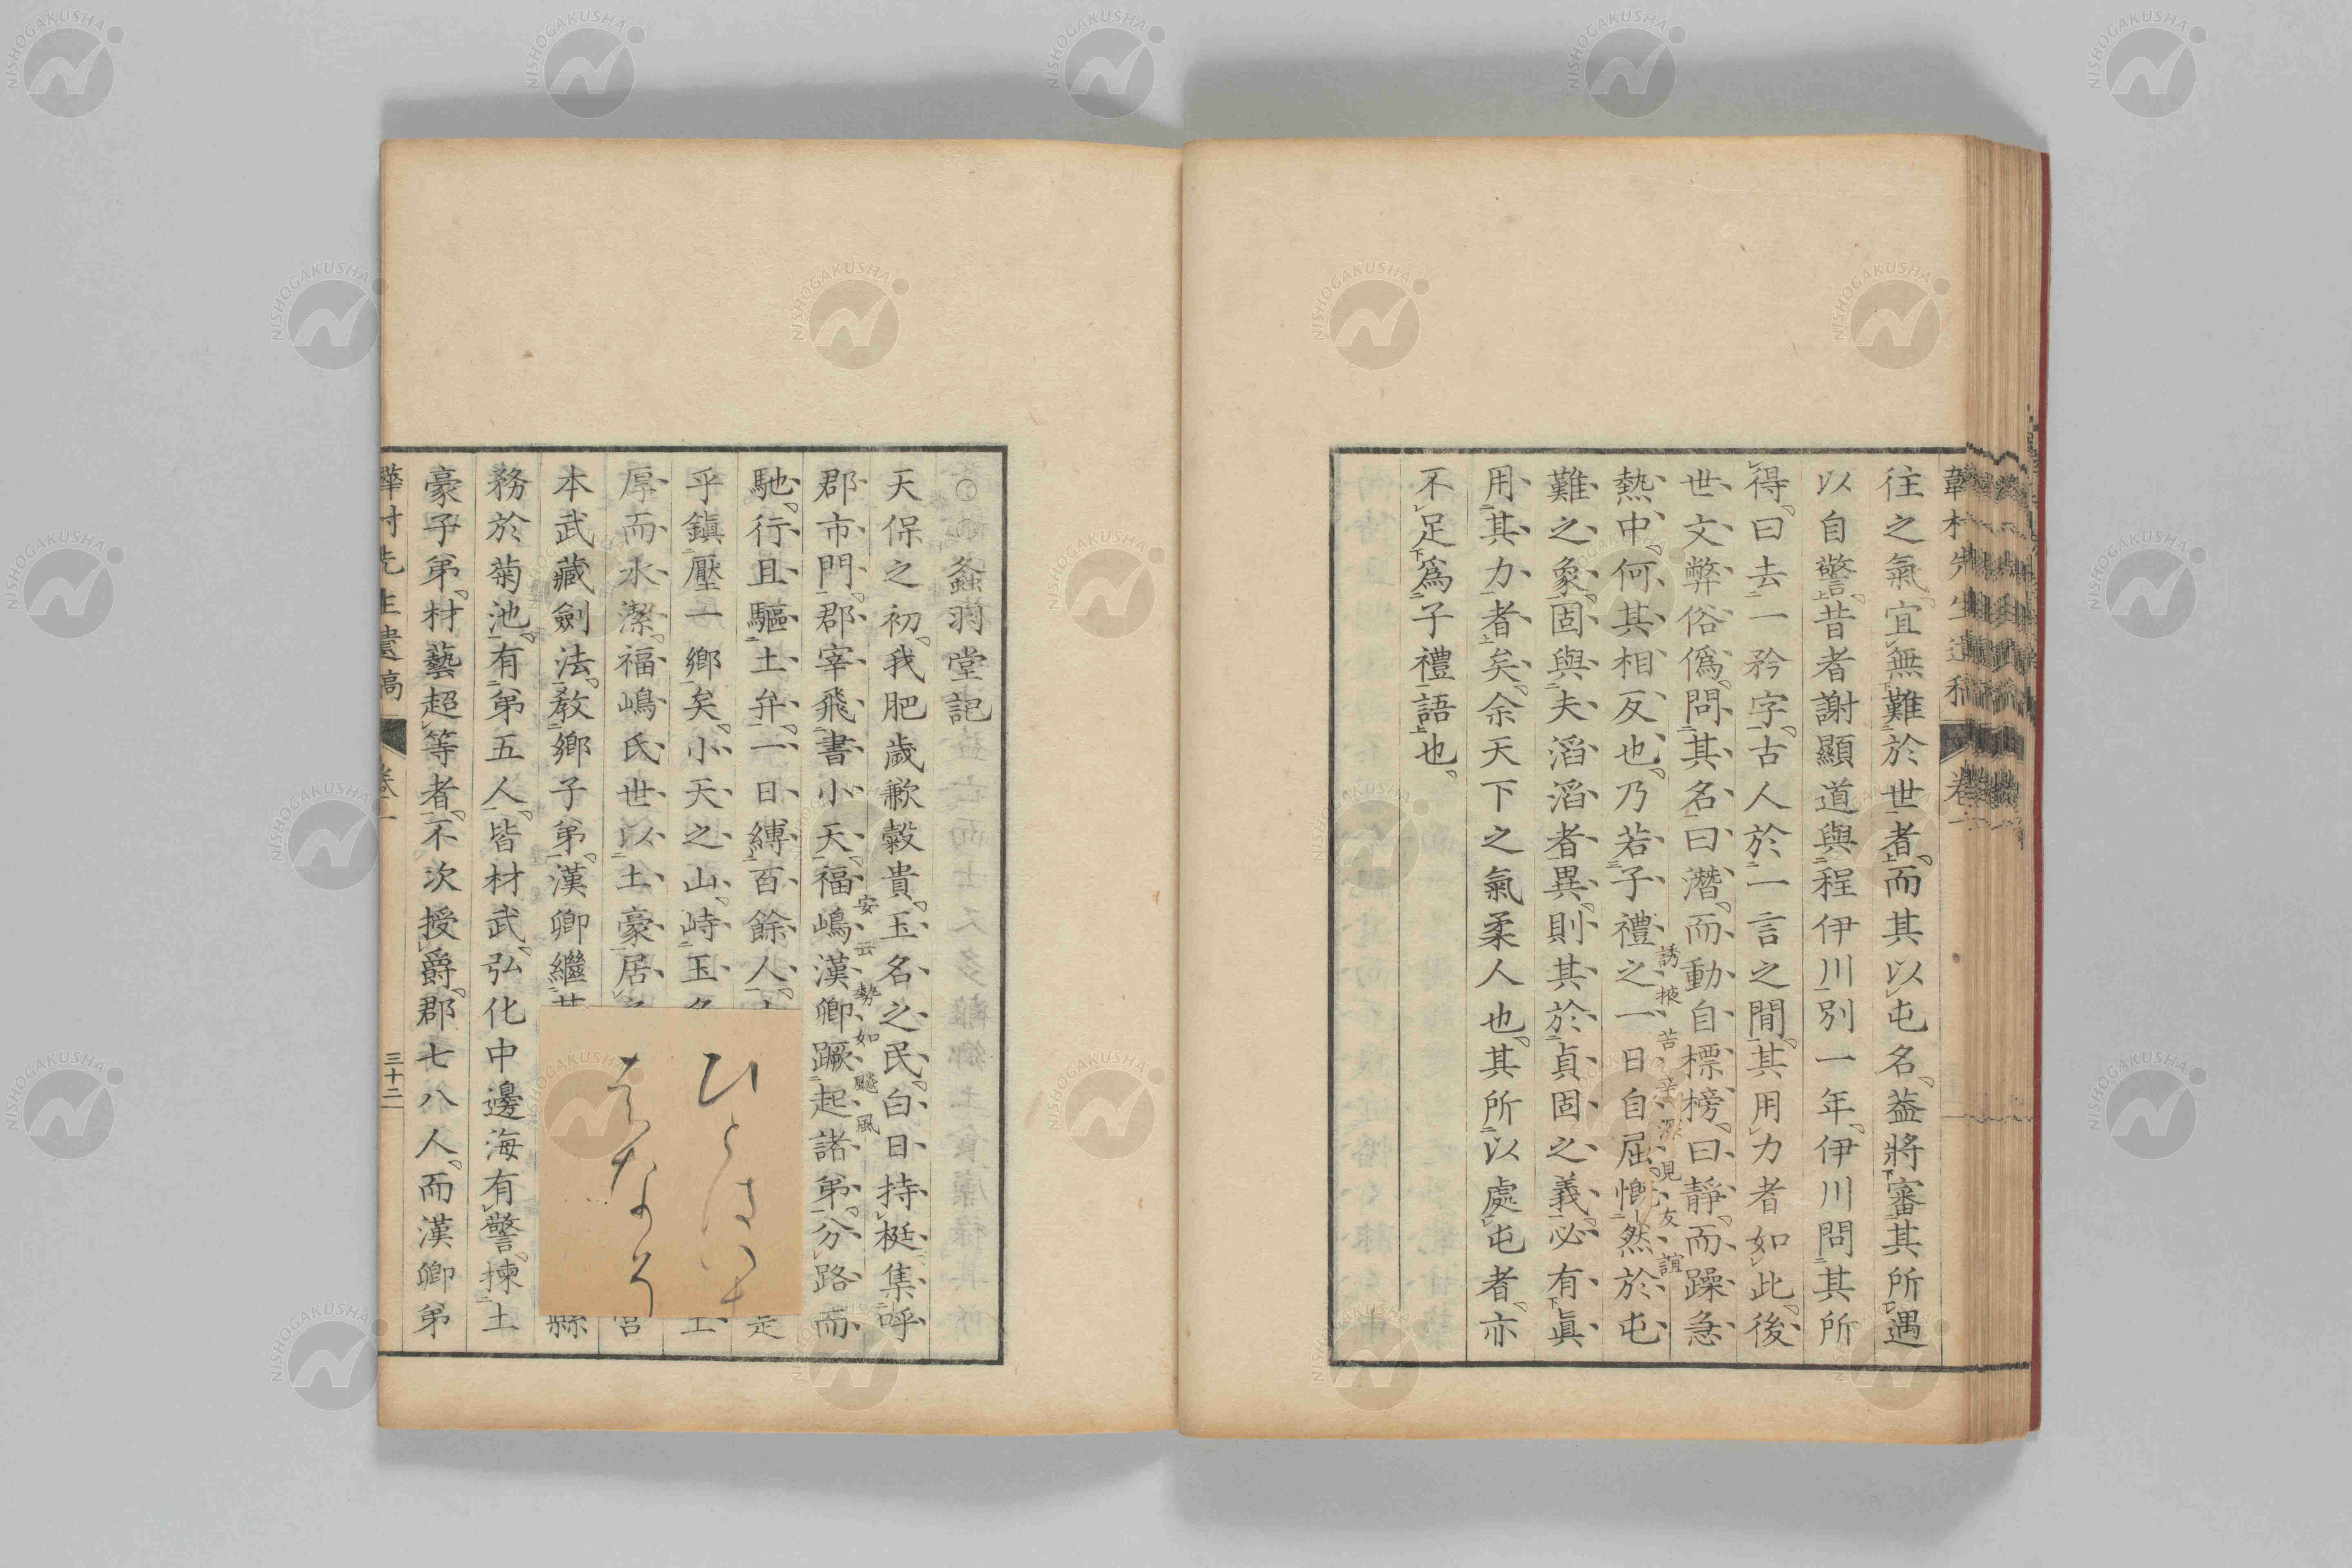 往之氣宜無難於世者而其以屯名葢將審其所遇
以自警昔者謝顯道與程伊川別一年伊川問其所
得曰去一矜字古人於一言之間其用力者如此後
世文弊俗僞問其名曰潛而動自標榜曰靜而躁急
熱中何其相反也乃若子禮之一日自屈慨然於屯
誘掖苦辛深見友誼
難之象固與夫滔滔者異則其於貞固之義必有眞
用其力者矣余天下之氣柔人也其所以處屯者亦
不足爲子禮語也
○螽羽堂記
天保之初我肥歲歉穀貴玉名之民白日持梃集呼
郡市門郡宰飛書小天福嶋漢卿蹶起諸弟分路而
安云勢如颷風
馳行且驅土弁一日縛百餘人
乎鎭壓一鄉矣小天之山峙玉
厚而水潔福嶋氏世以土豪居
本武藏劍法教鄉子弟漢卿繼其
縣
務於菊池有第五人皆材武弘化中邊海有警揀土
豪子弟材藝超等者不次授爵郡七八人而漢卿弟
先生遺稿
三十二
ひとはいさ
NISHOGAKUSHA